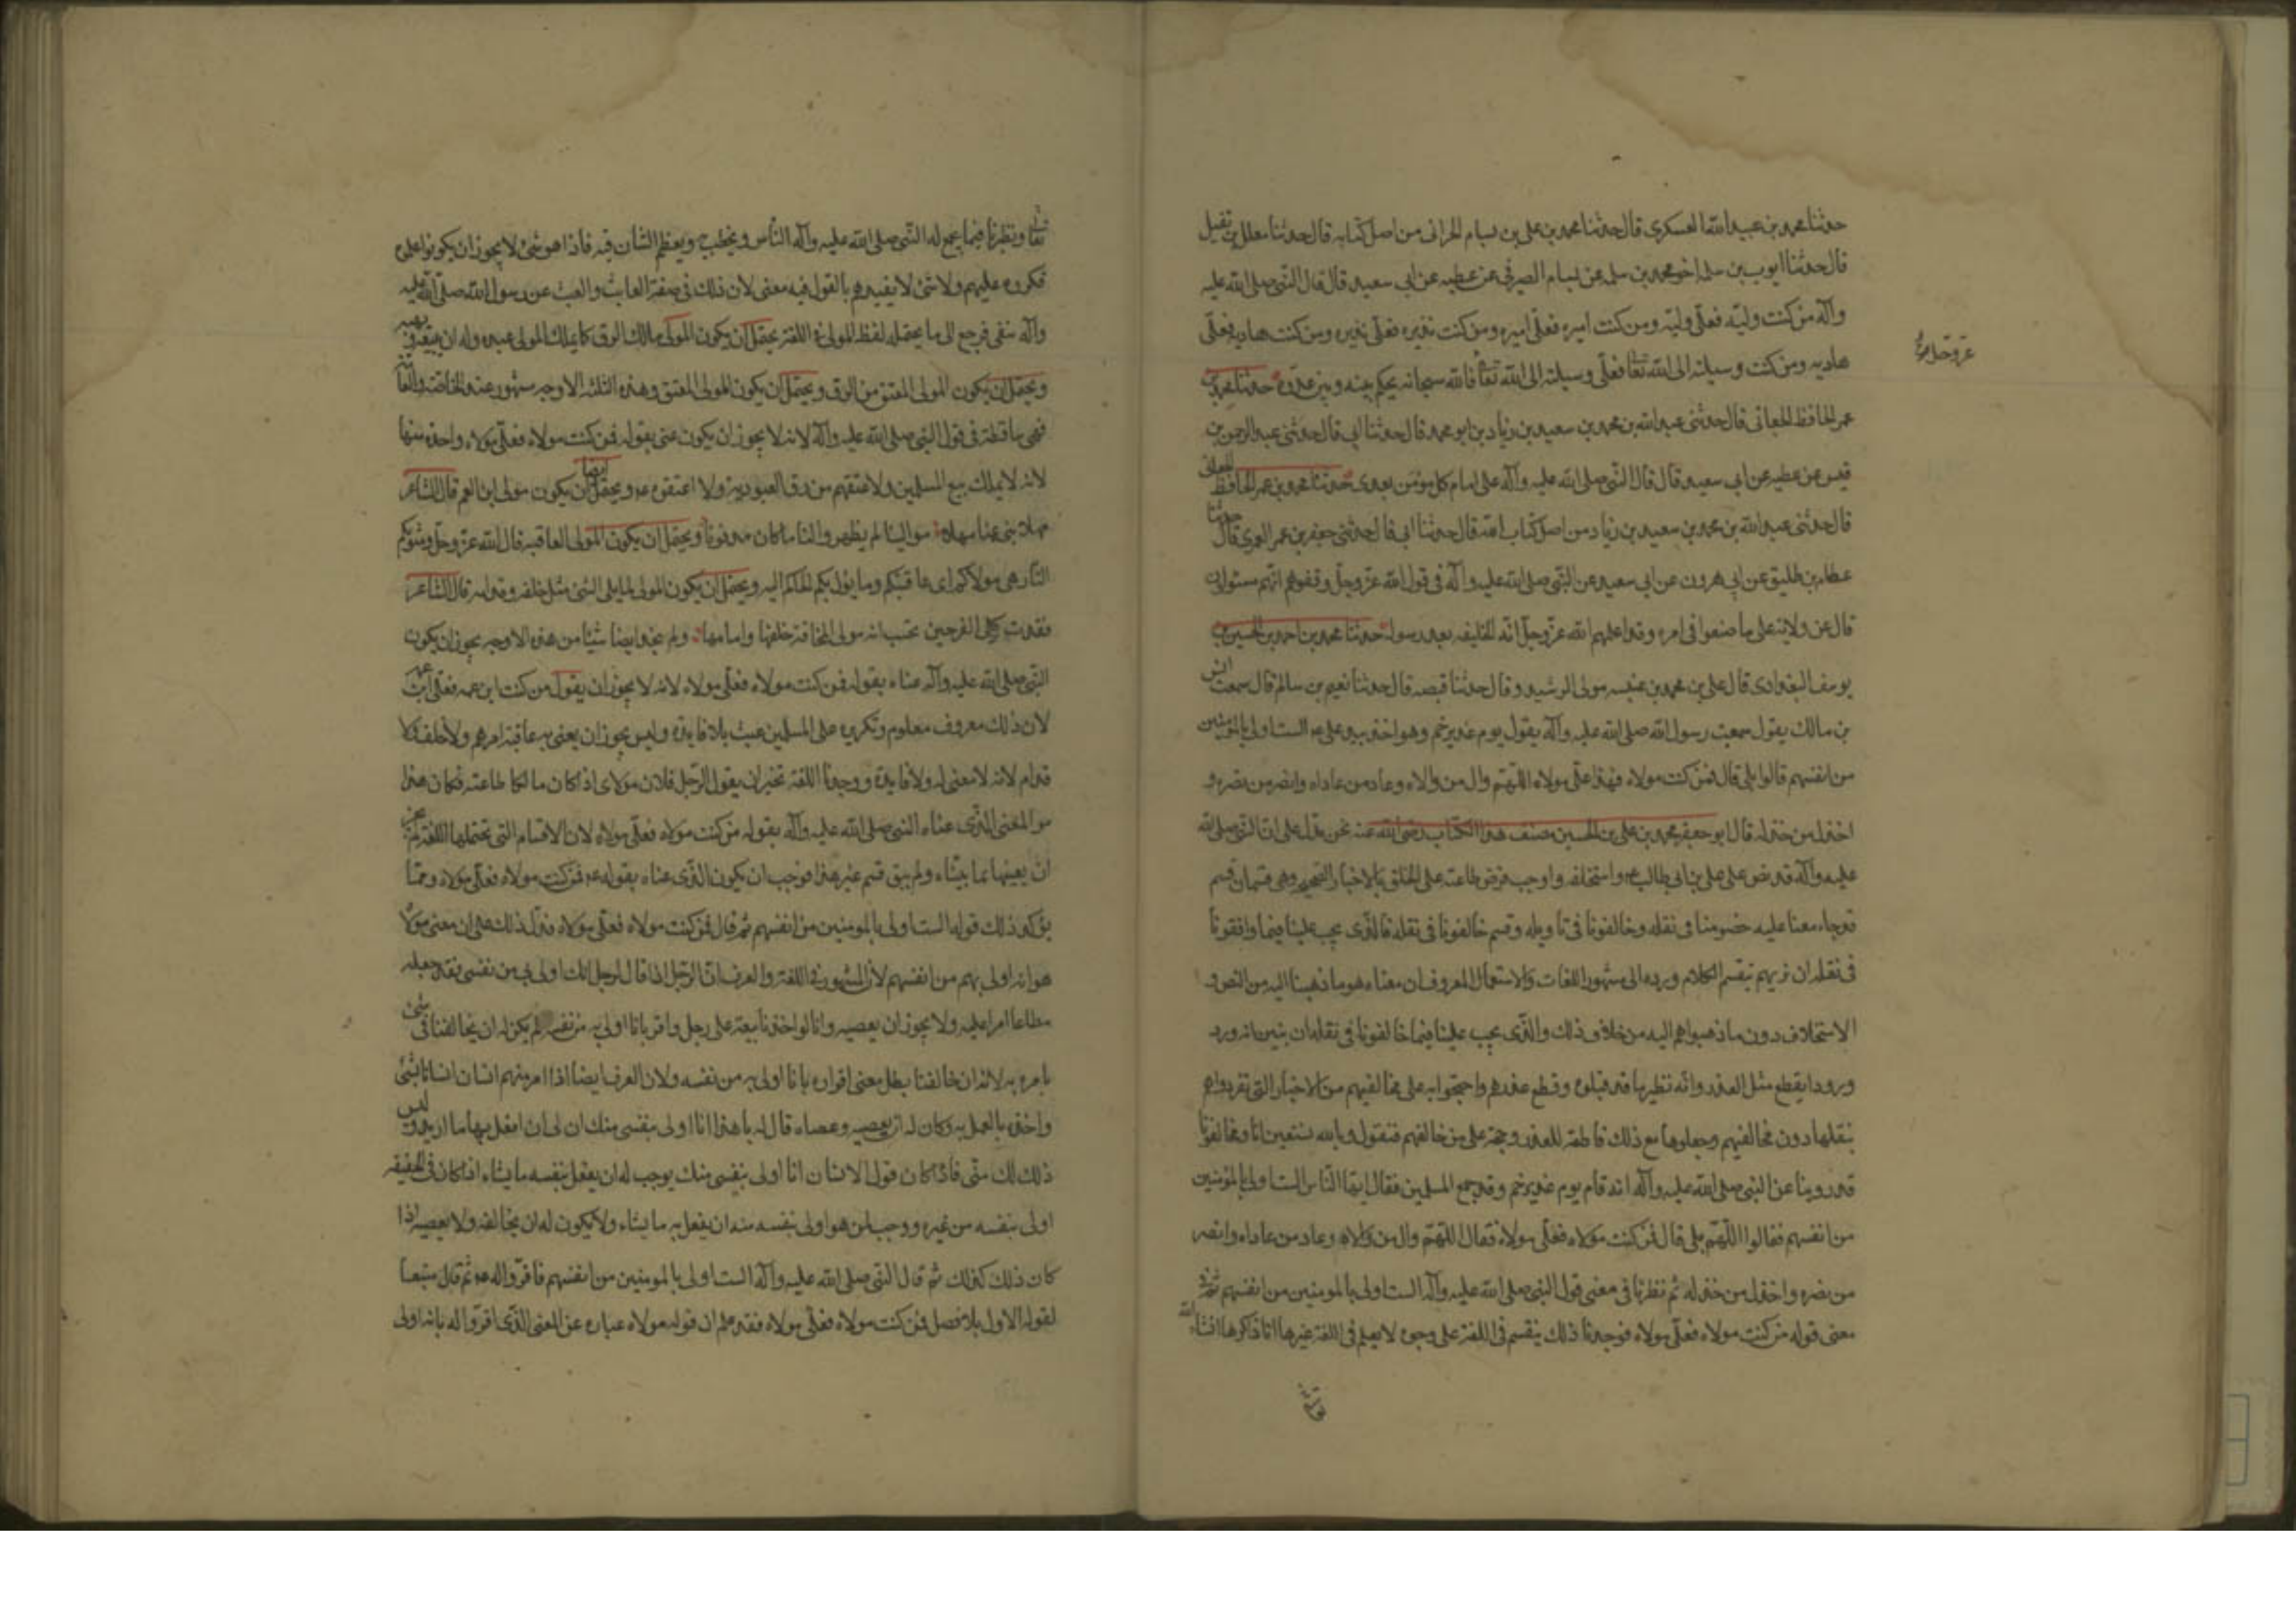 حدثنا محمد بن عبيد الله العسكرى قال حدثنا محمد بن على بن بسام الحرانى من اصل كتابه قال حدثنا معلل بن نفيل
قال حدثنا ايوب بن سلمه اخو محمد بن سلمه عن بسام الصيرفى عن عطيه عن ابى سعيد قال قال النبى صلى الله عليه
وآله من كنت وليه فعلى وليه ومن كنت اميره فعلى اميره ومن كنت نذيره فعلى نذيره ومن كنت هاديه فعلى
هاديه ومن كنت وسيلته الى الله تعا فعلى وسيلته الى الله تعا فالله سبحانه يحكم بينه وبين عدوه حدثنا محمد بن
عز وجل
عمر الحافظ الجعابى قال حدثنى عبد الله بن محمد بن سعيد بن زياد بن ابو محمد قال حدثنا ابى قال حدثنى عبد الرحمن بن
قيس عن عطيه عن ابى سعيد قال قال النبى صلى الله عليه وآله على امام كل مؤمن بعدى حدثنا محمد بن عمر الحافظ الجعابى
قال حدثنى عبد الله بن محمد بن سعيد بن زياد من اصل كتاب قال حدثنا ابى قال حدثنى حفص بن عمر العمرى قال حدثنا
عطاء بن طليق عن ابى هرون عن ابى سعيد عن النبى صلى الله عليه وآله فى قول الله عز وجل وقفوهم انهم مسئولون
قال عن ولاية على ما صنعوا فى امره وقد اعلمهم الله عز وجل انه الخليفه بعد رسوله حدثنا محمد بن احمد بن الحسين بن
يوسف البغدادى قال على بن محمد بن عنبسه مولى الرشيد وقال حدثنا قبصه قال حدثنا نعيم بن سالم قال سمعت انس
بن مالك يقول سمعت رسول الله صلى الله عليه وآله يقول يوم غدير خم وهو اخذ بيد على ع الست اولى بالمؤمنين
من انفسهم قالوا بلى قال فمن كنت مولاه فهذا على مولاه اللهم وال من والاه وعاد من عاداه وانصر من نصره و
اخذل من خذله قال ابو جعفر محمد بن على بن الحسين مصنف هذا الكتاب رضى الله عنه نحن نستدل على ان النبى صلى الله
عليه وآله قد نص على على بن ابى طالب ع واستخلفه واوجب فرض طاعته على الخلق بالاخبار الصحيحه وهى قسمان قسم
قد جامعنا عليه خصومنا فى نقله وخالفونا فى تاويله وقسم خالفونا فى نقله فالذى يجب علينا فيما وافقونا
فى نقله ان نريهم بتقسيم الكلام ورده الى مشهور اللغات والاستعمال المعروف ان معناه هو ما ذهبنا اليه من النص و
الاستخلاف دون ما ذهبوا هم اليه من خلاف ذلك والذى يجب علينا فيما خالفونا فى نقله ان نبين انه ورد
ورودا يقطع مثله العذر وانه نظير ما قد قبلوه وقطع عذرهم واحتجوا به على مخالفيهم من الاخبار التى تفردوا هم
بنقلها دون مخالفيهم وجعلوها مع ذلك قاطعة للعذر وحجة على من خالفهم فنقول وبالله نستعين انا ومخالفونا
قد روينا عن النبى صلى الله عليه وآله انه قام يوم غدير خم وقد جمع المسلمين فقال ايها الناس الست اولى بالمؤمنين
من انفسهم فقالوا اللهم بلى قال فمن كنت مولاه فعلى مولاه فقال اللهم وال من والاه وعاد من عاداه وانصر
من نصره واخذل من خذله ثم نظرنا فى معنى قول النبى صلى الله عليه وآله الست اولى بالمومنين من انفسهم ثم
معنى قوله من كنت مولاه فعلى مولاه فوجدنا ذلك ينقسم فى اللغة على وجوه لا يعلم فى اللغة غيرها انا ذاكرها انشاء الله
تعا ونظرنا فيما يجمع له النبى صلى الله عليه وآله الناس ويخطب به ويعظم الشأن فيه فاذا هو شئ لا يجوز ان يكونوا علموه
فكرره عليهم ولا شئ لا يفيدهم بالقول فيه معنى لان ذلك فى صفة العابث والعبث عن رسول الله صلى الله عليه
وآله منفى فرجع الى ما يحتمله لفظ المولى فى اللغة يحتمل ان يكون المولى مالك الرق كما يملك المولى عبده وله ان يبيعه ويهبه
ويحتمل ان يكون المولى المعتق من الرق ويحتمل ان يكون المولى المعتق وهذه الثلثة الاوجه مشهور عند الخاصة والعامة
فهى ساقطة فى قول النبى صلى الله عليه وآله لانه لا يجوز ان يكون عنى بقوله فمن كنت مولاه فعلى مولاه واحدة منها
لانه لا يملك بيع المسلمين ولا عتقهم من رق العبودية ولا اعتقوه ع ويحتمل ايضا ان يكون مولى ابن العم قال الشاعر
مهلا بنى عمنا مهلا موالينا لم يظهرو النا ما كان مدفونا ويحتمل ان يكون المولى العاقبه قال الله عز وجل ومأويكم
النار هى مولاكم اى عاقبتكم وما يؤل بكم الحكم اليه ويحتمل ان يكون المولى لما يلى الشئ مثل خلفه وقدامه قال الشاعر
فغدت كلى الفرجين تحسب انه مولى المخافة خلفها وامامها ولم نجد ايضا شيئا من هذه الاوجه يجوز ان يكون
النبى صلى الله عليه وآله عناه بقوله فمن كنت مولاه فعلى مولاه لانه لا يجوز ان يقول من كنت ابن عمه فعلى ابن عمه
لان ذلك معروف معلوم وتكريره على المسلمين عبث بلا فايدة وليس يجوز ان يعنى به عاقبة امرهم ولا خلف ولا
قدام لانه لا معنى له ولا فايدة ووجدنا اللغة تجيز ان يقول الرجل فلان مولاى اذا كان مالكا طاعته فكان هذا
هو المعنى الذى عناه النبى صلى الله عليه وآله بقوله من كنت مولاه فعلى مولاه لان الاقسام التى تحتملها اللغة لم يجز
ان يعنيها بما بيناه ولم يبق قسم غير هذا فوجب ان يكون الذى عناه بقوله ع فمن كنت مولاه فعلى مولاه ومما
يؤكد ذلك قوله الست اولى بالمومنين من انفسهم ثم قال فمن كنت مولاه فعلى مولاه فدل ذلك على ان معنى مولاه
هو انه اولى بهم من انفسهم لان المشهور فى اللغة والعرف ان الرجل اذا قال لرجل انك اولى بى من نفسى فقد جعله
مطاعا امرا عليه ولا يجوز ان يعصيه وانا لو اخذنا بيعة على رجل واقر بانا اولى به من نفسه لم يكن له ان يخالفنا فى شئ
نامره به لانه ان خالفنا بطل معنى اقراره بانا اولى به من نفسه ولان العرف ايضا اذا امر منهم انسان انسانا بشئ
واخذه بالعمل به وكان له ان يعصيه وعصاه قال له يا هذا انا اولى بنفسى منك ان لى ان افعل بها ما اريد وليس
ذلك لك منى فاذا كان قول الانسان انا اولى بنفسى منك يوجب له ان يفعل بنفسه ما يشاء اذا كان فى الحقيقه
اولى بنفسه من غيره ووجب لمن هو اولى بنفسه منه ان يفعل به ما يشاء ولا يكون له ان يخالفه ولا يعصيه اذا
كان ذلك كذلك ثم قال النبى صلى الله عليه وآله الست اولى بالمومنين من انفسهم فاقروا له ع ثم قال متبعا
لقوله الاول بلا فصل فمن كنت مولاه فعلى مولاه فقد علم ان قوله مولاه عباره عن المعنى الذى اقروا له بانه اولى